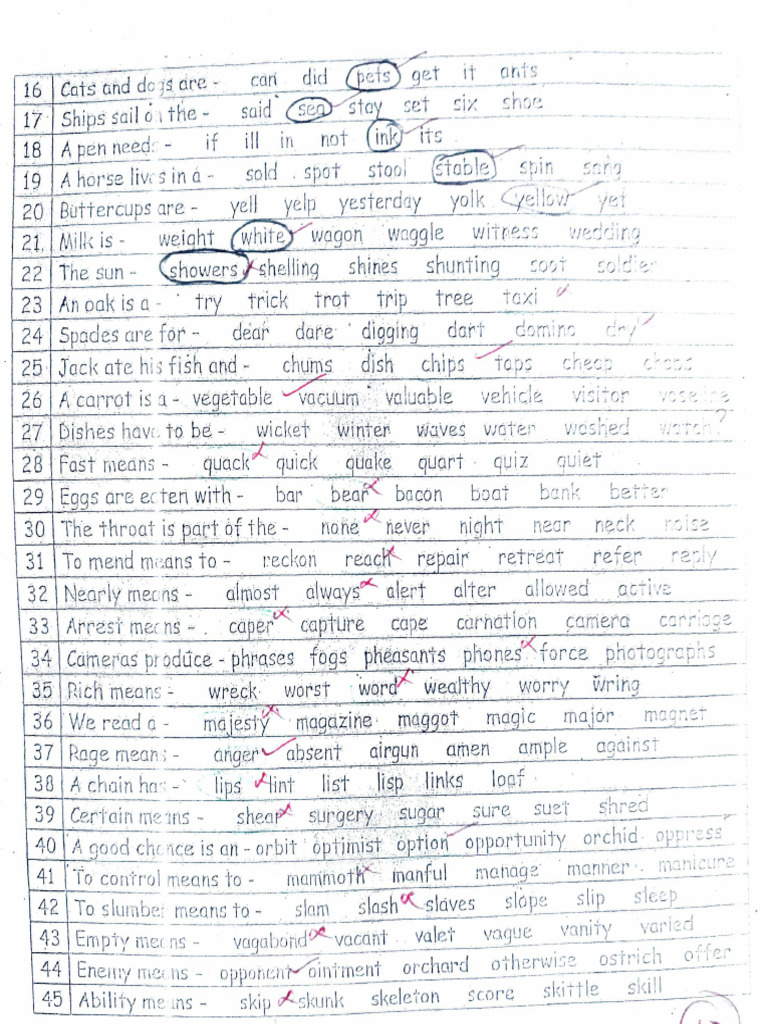 16 Cats and dogs are - can did pets get it ants
17 Ships sail on the - said sea stay set six shoe
18 A pen needs - if ill in not ink its
19 A horse lives in a - sold spot stool stable spin sang
20 Buttercups are - yell yelp yesterday yolk yellow yet
21 Milk is - weight white wagon waggle witness wedding
22 The sun - showers shelling shines shunting soot soldier
23 An oak is a - try trick trot trip tree taxi
24 Spades are for - dear dare digging dart domino dry
25 Jack ate his fish and - chums dish chips taps cheap
26 A carrot is a - vegetable vacuum valuable vehicle visitor vaseline
27 Dishes have to be - wicket winter waves water washed watch ?
28 Fast means - quack quick quake quart quiz quiet
29 Eggs are eaten with - bar bear bacon boat bank better
30 The throat is part of the - none never night near neck noise
31 To mend means to - reckon reach repair retreat refer reply
32 Nearly means - almost always alert alter allowed active
33 Arrest means - caper capture cape carnation camera carriage
34 Cameras produce - phrases fogs pheasants phones force photographs
35 Rich means - wreck worst word wealthy worry wring
36 We read a - majesty magazine maggot magic major magnet
37 Rage means - anger absent airgun amen ample against
38 A chain has - lips lint list lisp links loaf
39 Certain means - shear surgery sugar sure suet shred
40 A good chance is an - orbit optimist option opportunity orchid oppress
41 To control means to - mammoth manful manage manner manicure
42 To slumber means to - slam slash slaves slope slip sleep
43 Empty means - vagabond vacant valet vague vanity varied
44 Enemy means - opponent ointment orchard otherwise ostrich offer
45 Ability means - skip skunk skeleton score skittle skill